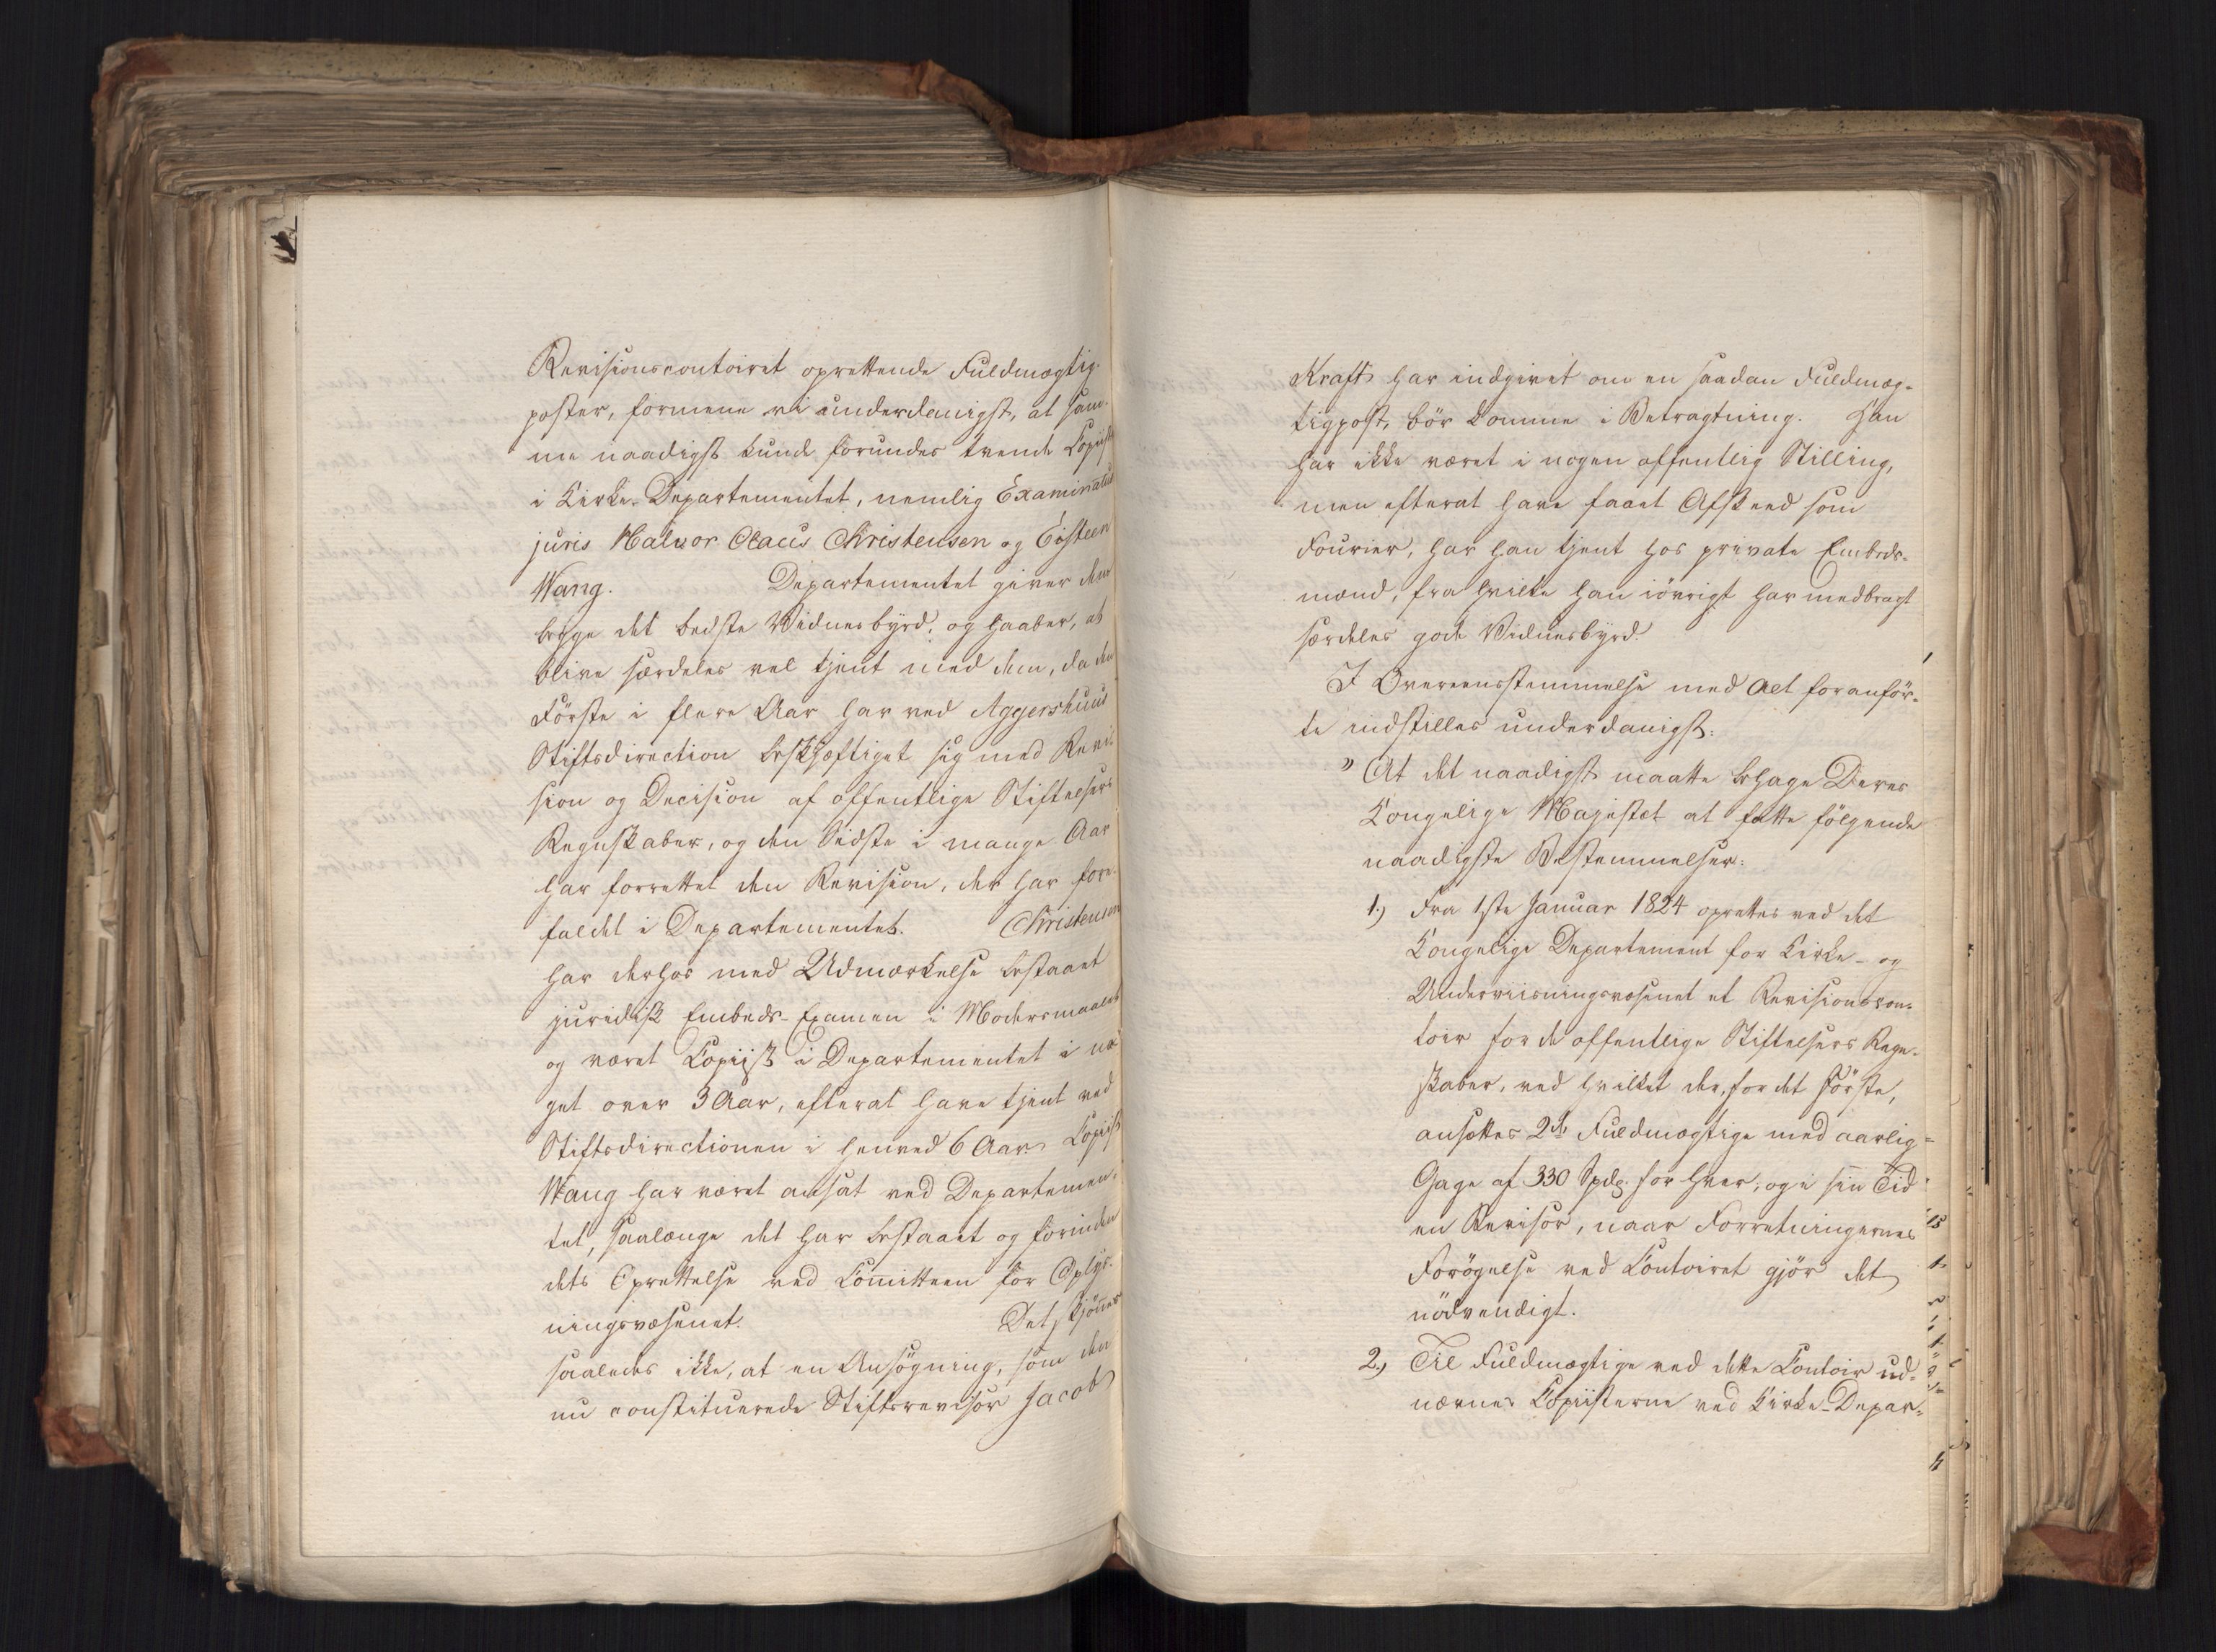 Revisionscontoiret oprettende Fuldmægtig-
poster, formene vi underdanigst, at sam-
me naadigst kunde forundes trende Copiist
i Kirke-Departementet, nemlig Examinatus
juris Halvor Olaus Christensen og Eisteen
Wang. Departementet giver dem
begge det bedste Vidnesbyrd, og haaber, at
blive særdeles vel tjent med dem, da den
Første i flere Aar har ved Aggershuus
Stiftsdirection beskjæftiget sig med Revi-
sion og Decision af offentlige Stiftelsers
Regnskaber, og den Sidste i mange Aar
har forrettet den Revision, der har fore-
faldet i Departementet. Christensen
har derhos med Udmærkelse bestaaet
juridisk Embeds-Examen i Modersmaalet
og været Copiist i Departementet i no-
get over 3 Aar, efterat have tjent ved
Stiftsdirectionen i henved 6 Aar. Copiist
Wang har været ansat ved Departemen-
tet, saalænge det har bestaaet og forinden
dets Oprettelse ved Comitteen for Oplys-
ningsvæsenet. Det skjønnes
saaledes ikke, at en Ansøgning, som den
nu constituerede Stiftsrevisor Jacob
Kraft har indgivet om en saadan Fuldmæg-
tigpost, bør komme i Betragtning. Han
har ikke været i nogen offentlig Stilling,
men efterat have faaet Afskeed som
Fourier, har han tjent hos private Embeds-
mænd, fra hvilke han iøvrigt har medbragt
særdeles gode Vidnesbyrd.
I Overeensstemmelse med Alt foranfør-
te indstilles underdanigst:
" At det naadigst maatte behage Deres
Kongelige Majestæt at fatte følgende
naadigste Bestemmelser:
1.) Fra 1ste Januar 1824 oprettes ved det
Kongelige Departement for Kirke- og
Underviisningsvæsenet et Revisionscon-
toir for de offentlige Stiftelsers Regn-
skaber, ved hvilket der, for det Første,
ansættes 2de Fuldmægtige med aarlig
Gage af 330 Spd. for hver, og i sin Tid
en Revisor, naar Forretningernes
Forøgelse ved Contoiret gjør det
nødvendigt.
2.) Til Fuldmægtige ved dette Contoir ud-
nævnes Copiisterne ved Kirke-Depar-